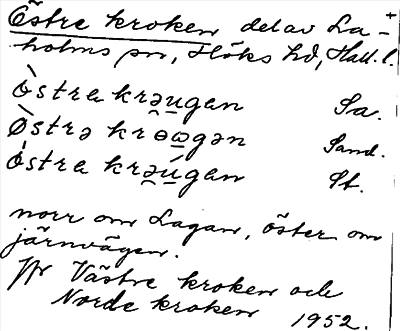 Östre kroken del av La-
holms sn, Höks hd, Hall. l.
òstra krə̯ṵgan Sa.
Östrə krɵ̯ɷgən Sand.
òstra krə̯ṵ́gan St.
norr om Lagan, öster om
järnvägen.
Jfr Västre kroken och
Norde kroken 1952.